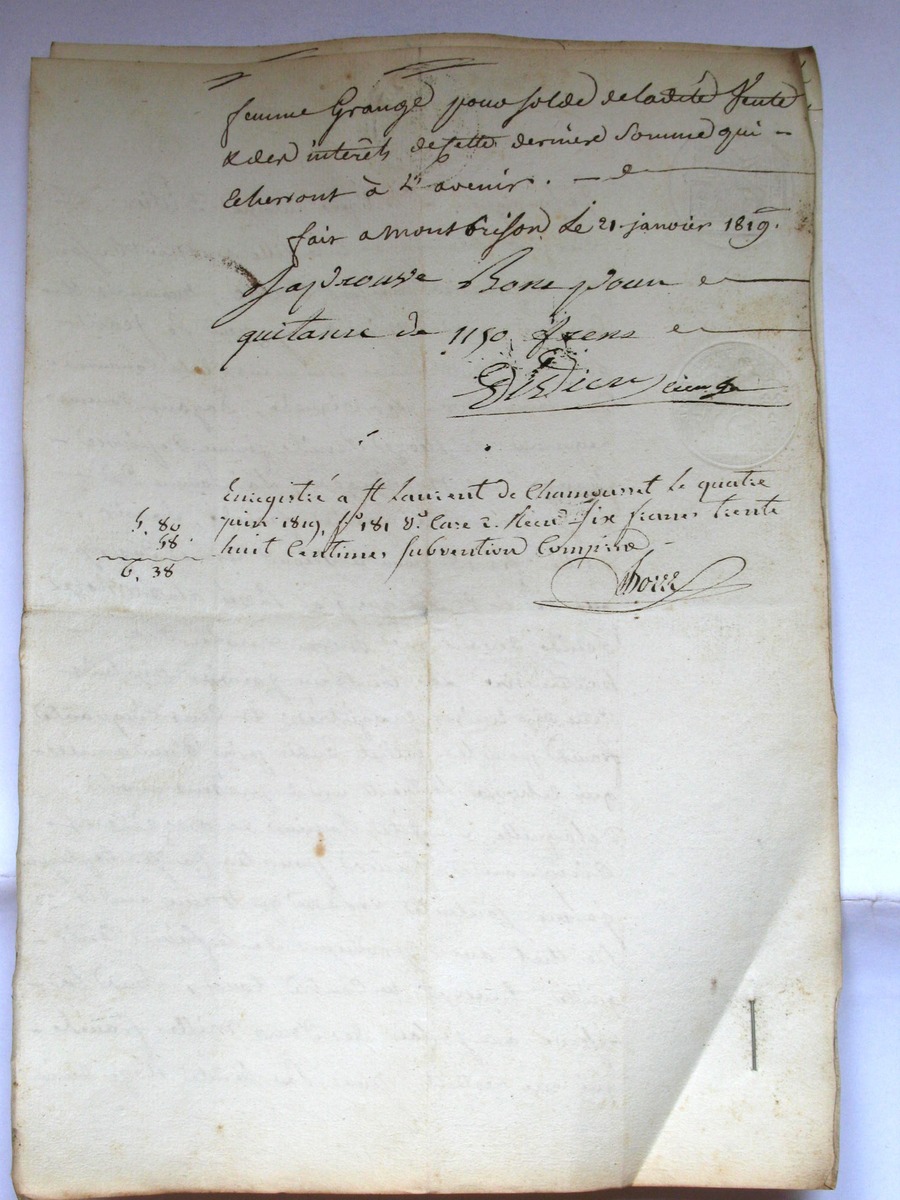 femme Grange pour solde de ladite Vente
& des intérêts de Cette derniere Somme qui
Echerront à L'avenir.
fait a montbrison Le 21 janvier 1819.
Japrouve Bone pour
quitanse de 1150 frens
Enregistré a St Laurent de Chamousset Le quatre
juin 1819, fo 181 Vo Case 2. Recu Six francs trente
huit Centimes Subvention Comprise
5. 80
58
6. 38